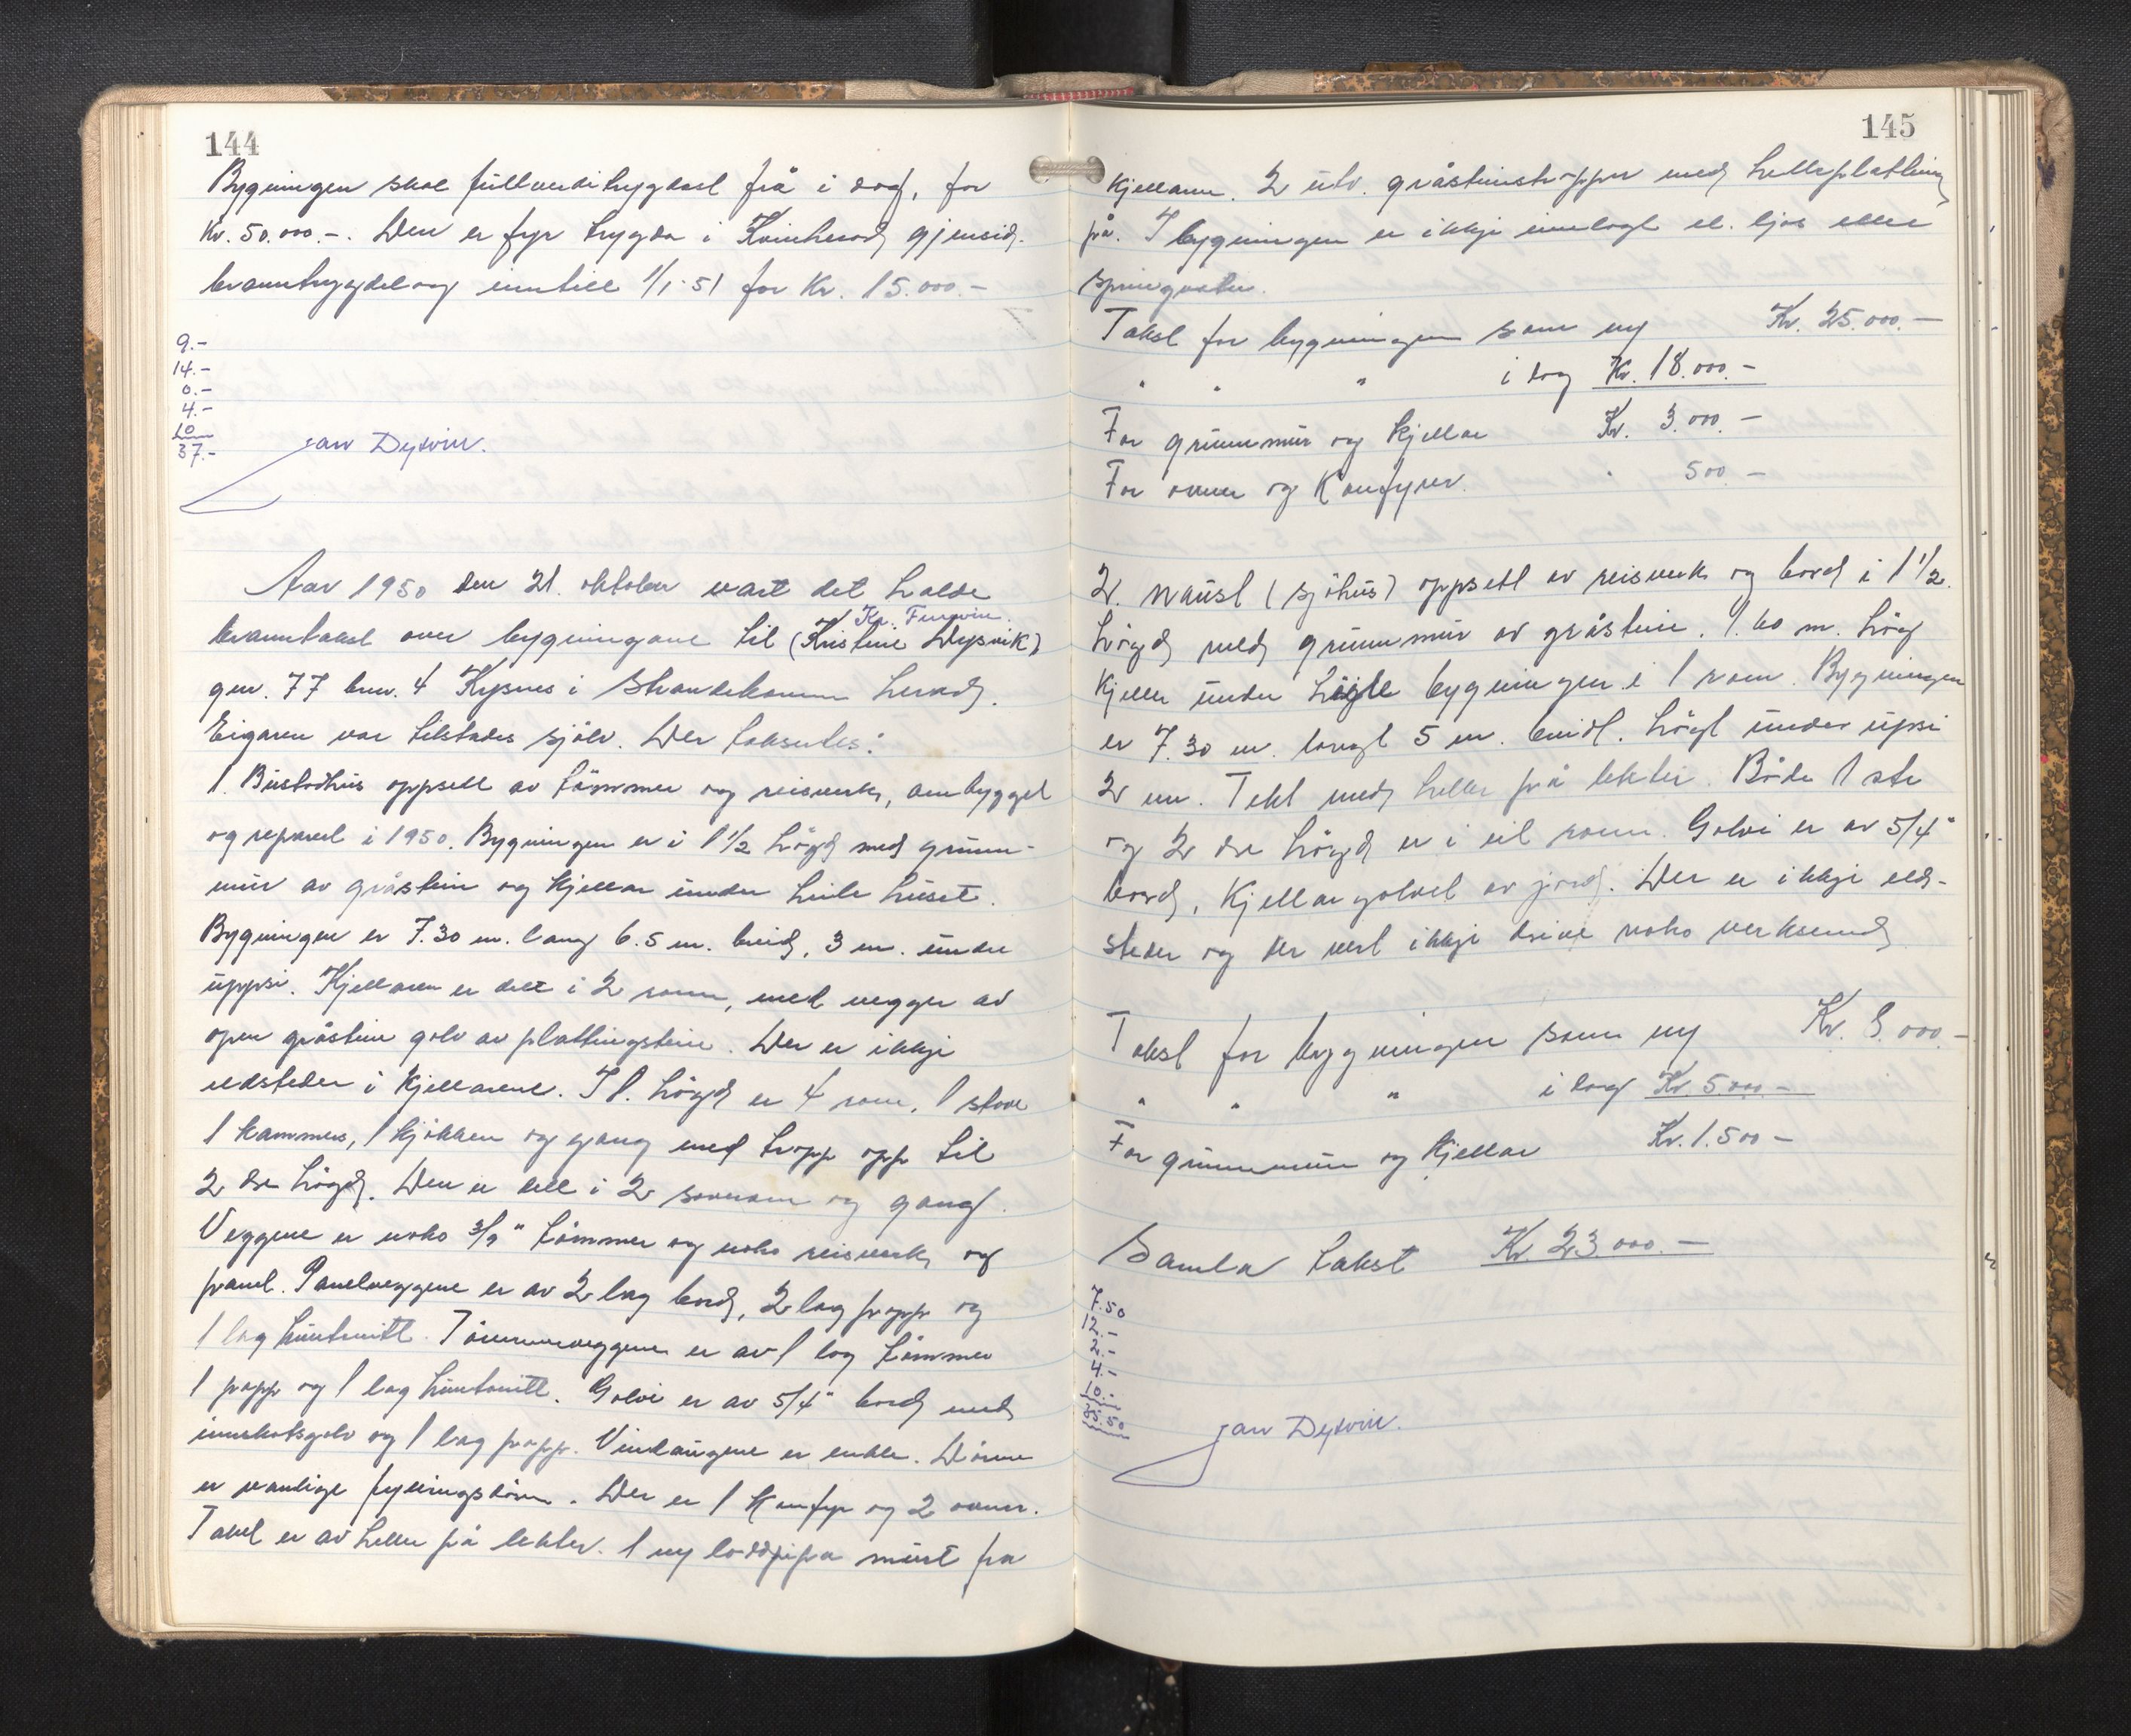 144
Bygningen skal fullverditrygdast frå i dag, for
Kr. 50.000.-. Den er fyr trygda i Kvinherad gjensid.
branntrygdelag inntill 1/1-51 for Kr. 15.000.-
9.-
14.-
0.-
4.-
10
37.-
Jan Dysvin.
Aar 1950 den 21. oktober vart det halde
Kr. Furevin.
branntakst over bygningane til (Kristine Dysvik)
gnr. 77 bnr. 4 Kysnes i Strandebarm herad.
Eigaren var tilstades sjølv. Der taksertes:
1. Bustadhus oppsett av tømmer og reisverk, ombygget
og reparert i 1950. Bygningen er i 1 1/2 høgd med grunn-
mur av gråstein og kjellar under heile huset.
Bygningen er 7.30 m. lang 6.5 m. breid, 3 m. under
uppsi. Kjellaren er delt i 2 romm, med vegger av
open gråstein golv av plattingsteine. Der er ikkje
eldsteder i kjellarene. I 1. høgd er 4 rom, 1 stove
1 kammers, 1 kjøkken og gang med tropp opp til
2 dre høgd. Den er delt i 2 soverom og gang.
Veggene er noko 3/9" tømmer og noko reisverk og
panel. Panelveggene er av 2 lag bord, 2 lag papp og
1 lag huntonitt. Tømmerveggene er av 1 lag tømmer
1 papp og 1 lag huntonitt. Golvi er av 5/4" bord med
innskotsgolv og 1 lag papp. Vindaugene er enkle. Dørene
er vanlige fyllingsdører. Der er 1 komfyr og 2 ovner.
Taket er av heller på lekter. 1 ny loddpipa murt fra
145
kjellaren. 2 utv. gråsteinstropper med helleplatting
på. I bygningen er ikkje innlagt el. ljos eller
springvatn.
Takst for bygningen som ny Kr. 25.000.-
" " " i dag Kr. 18.000.-
For grunnmur og kjellar Kr. 3.000.-
For ovner og Komfyrer. " 500.-
2. naust (sjøhus) oppsett av reisverk og bord i 1 1/2
høgd med grunnmur av gråstein. 1.60 m. høg
kjeller under heile bygningen i 1 rom. Bygningen
er 7.30 m. langt 5 m. breidt. høgt under upsi
2 m. Tekt med heller på lekter. Både 1 ste
og 2 dre høgd er i eit romm. Golvi er av 5/4"
bord, Kjellargolvet av jord. Der er ikkje eld-
steder og der vert ikkje drive noko verksemd
Takst for bygningen som ny Kr. 9.000.-
" " " i dag Kr. 5.000.-
For grunnmur og kjellar Kr. 1.500-
Samla takst Kr. 23.000.-
7.50
12.-
2.-
4.-
10.-
35.50
Jan Dysvin.